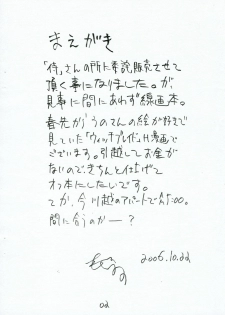 まえがき
「侍」さんの所に委託販売させて
頂く事になりました。が、
見事に間にあわず線画本。
春先からうのさんの絵が好きで
見ていた「ウィッチブレイド」H漫画で
ございます。引越してお金が
ないのできちんと仕上げて
オフ本にしたいです。
てか、今川越のアパートでAM5:00。
間に合うのかー?
2006.10.22
02